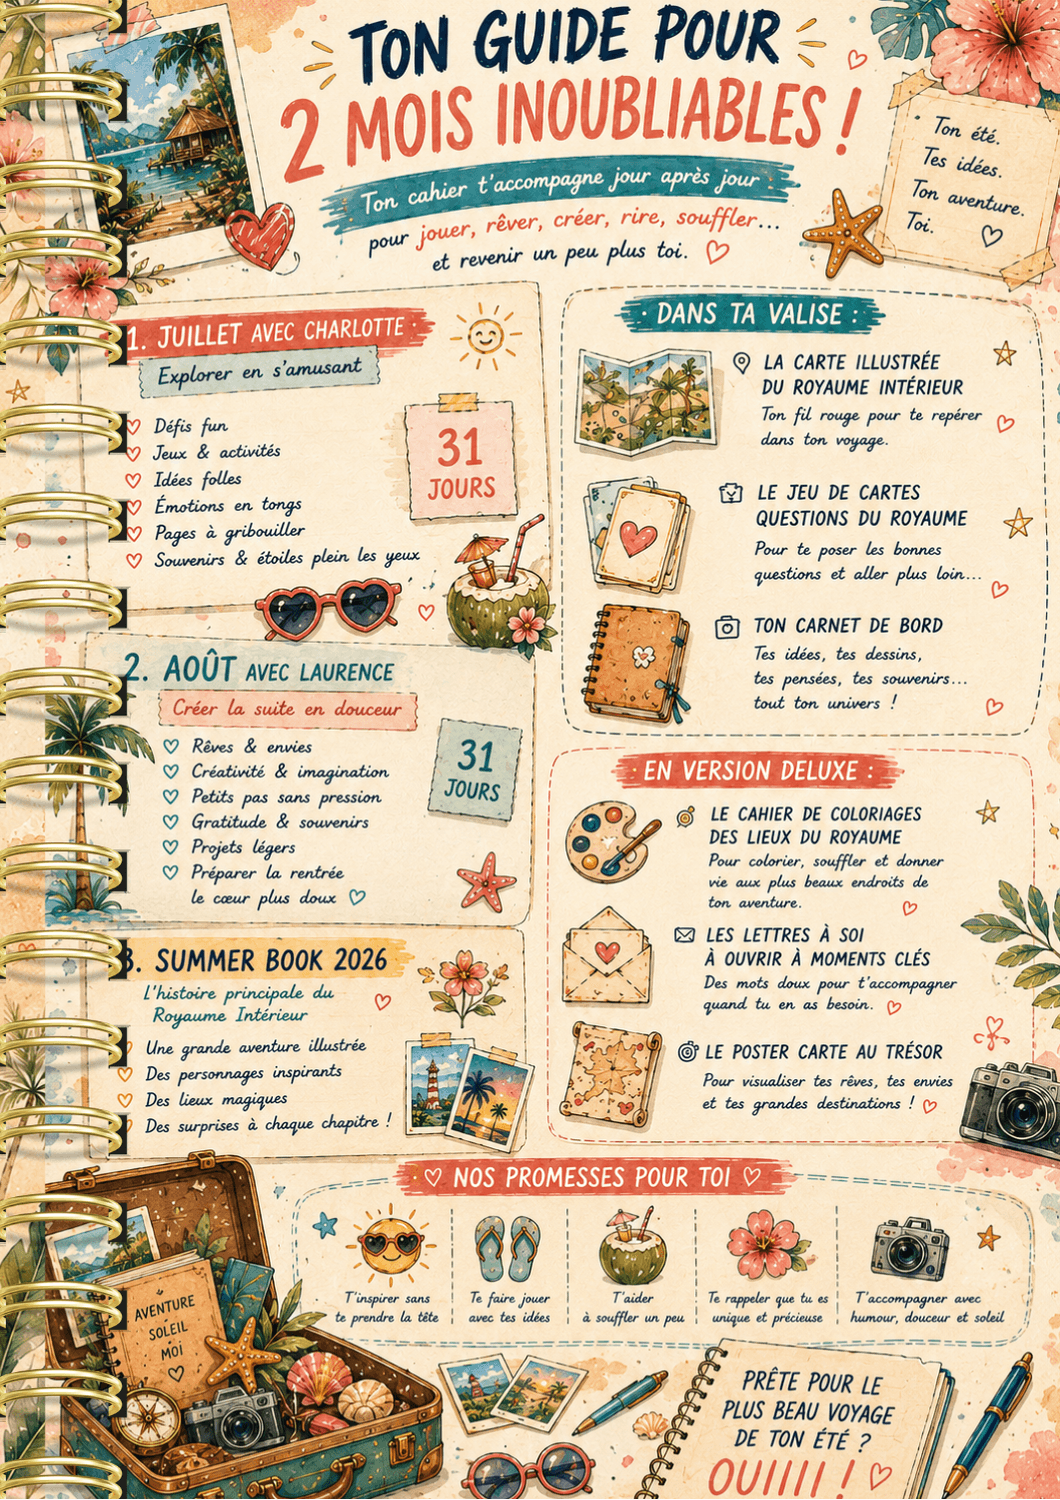 TON GUIDE POUR
2 MOIS INOUBLIABLES !
Ton cahier t'accompagne jour après jour
pour jouer, rêver, créer, rire, souffler...
et revenir un peu plus toi.
Ton été.
Tes idées.
Ton aventure.
Toi.
1. JUILLET AVEC CHARLOTTE
Explorer en s'amusant
Défis fun
Jeux & activités
Idées folles
Émotions en tongs
Pages à gribouiller
Souvenirs & étoiles plein les yeux
31
JOURS
2. AOÛT AVEC LAURENCE
Créer la suite en douceur
Rêves & envies
Créativité & imagination
Petits pas sans pression
Gratitude & souvenirs
Projets légers
Préparer la rentrée
le cœur plus doux
31
JOURS
3. SUMMER BOOK 2026
L'histoire principale du
Royaume Intérieur
Une grande aventure illustrée
Des personnages inspirants
Des lieux magiques
Des surprises à chaque chapitre !
DANS TA VALISE :
LA CARTE ILLUSTRÉE
DU ROYAUME INTÉRIEUR
Ton fil rouge pour te repérer
dans ton voyage.
LE JEU DE CARTES
QUESTIONS DU ROYAUME
Pour te poser les bonnes
questions et aller plus loin...
TON CARNET DE BORD
Tes idées, tes dessins,
tes pensées, tes souvenirs...
tout ton univers !
EN VERSION DELUXE :
LE CAHIER DE COLORIAGES
DES LIEUX DU ROYAUME
Pour colorier, souffler et donner
vie aux plus beaux endroits de
ton aventure.
LES LETTRES À SOI
À OUVRIR À MOMENTS CLÉS
Des mots doux pour t'accompagner
quand tu en as besoin.
LE POSTER CARTE AU TRÉSOR
Pour visualiser tes rêves, tes envies
et tes grandes destinations !
NOS PROMESSES POUR TOI
T'inspirer sans
te prendre la tête
Te faire jouer
avec tes idées
T'aider
à souffler un peu
Te rappeler que tu es
unique et précieuse
T'accompagner avec
humour, douceur et soleil
AVENTURE
SOLEIL
MOI
PRÊTE POUR LE
PLUS BEAU VOYAGE
DE TON ÉTÉ ?
OUIIII !